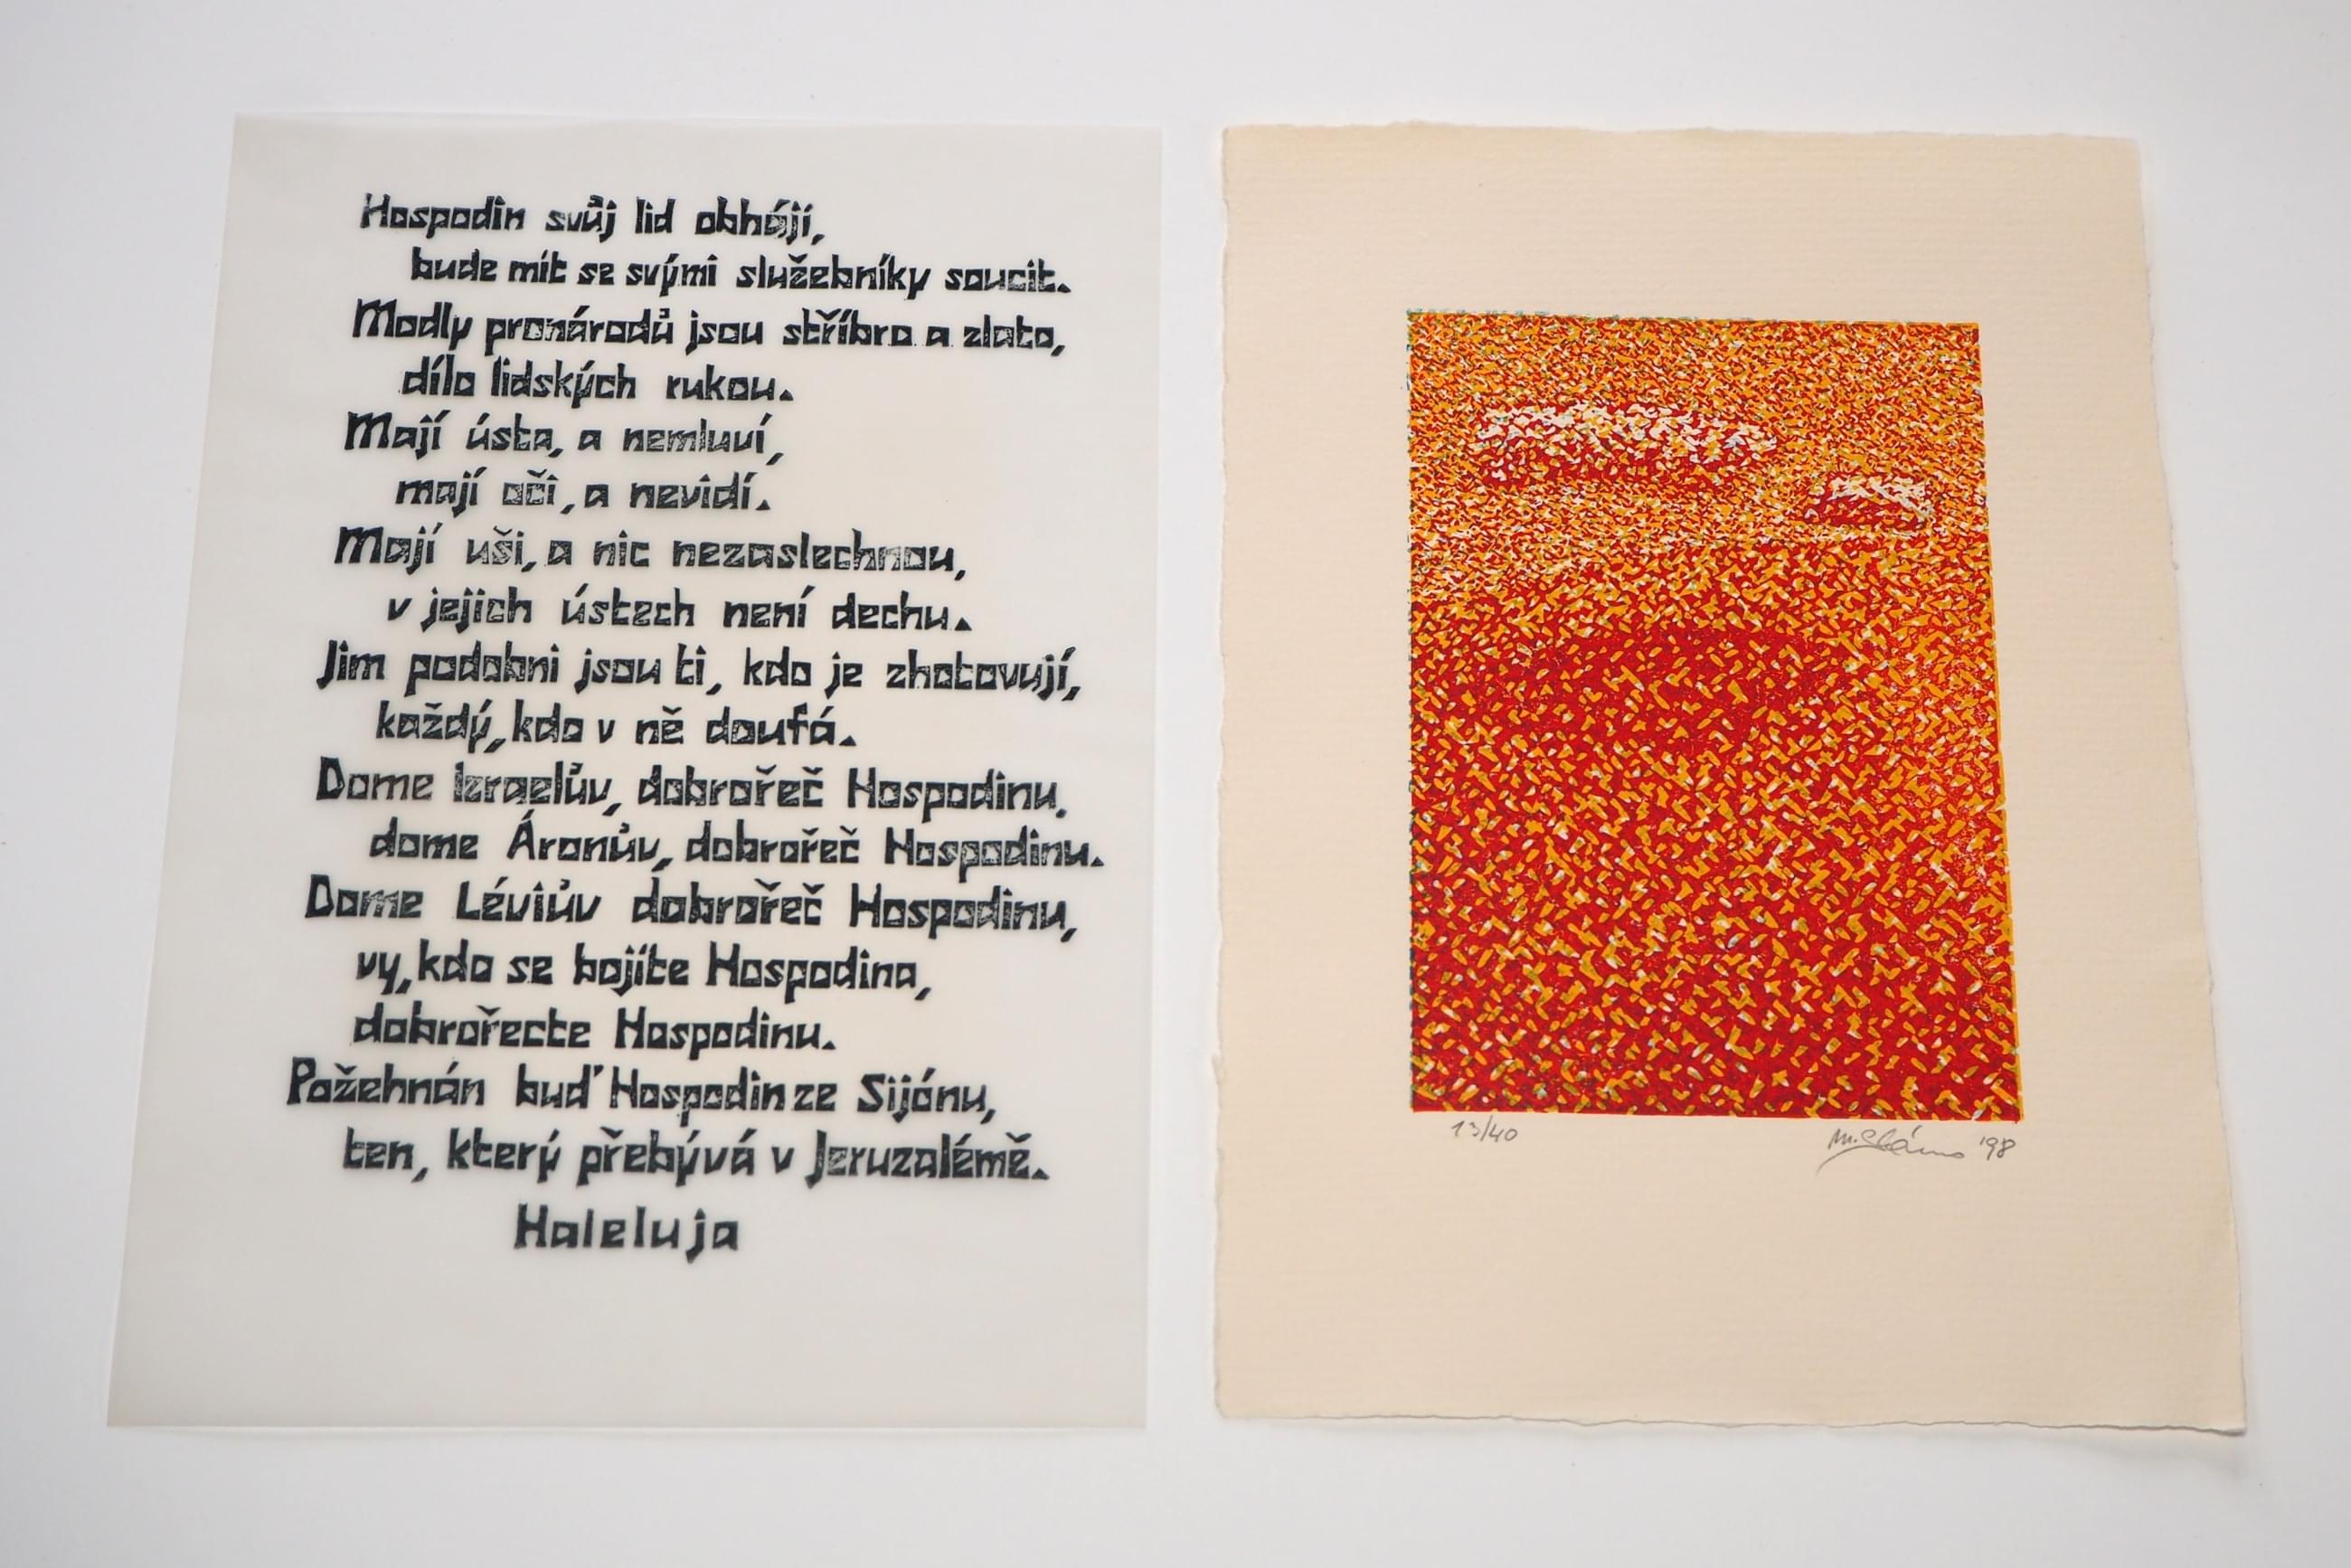 Hospodin svůj lid obhájí,
bude mít se svými služebníky soucit.
Modly pronárodů jsou stříbro a zlato,
dílo lidských rukou.
Mají ústa, a nemluví,
mají oči, a nevidí.
Mají uši, a nic nezaslechnou,
v jejich ústech není dechu.
Jim podobni jsou ti, kdo je zhotovují,
každý, kdo v ně doufá.
Dome Izraelův, dobrořeč Hospodinu,
dome Áronův, dobrořeč Hospodinu.
Dome Léviův dobrořeč Hospodinu,
vy, kdo se bojíte Hospodina,
dobrořecte Hospodinu.
Požehnán buď Hospodin ze Sijónu,
ten, který přebývá v Jeruzalémě.
Haleluja
13/40
'98